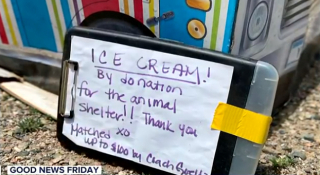 ICE CREAM!
By donation
for the animal
shelter!! Thank you
xo
Matched
up to $100 by
GOOD NEWS FRIDAY